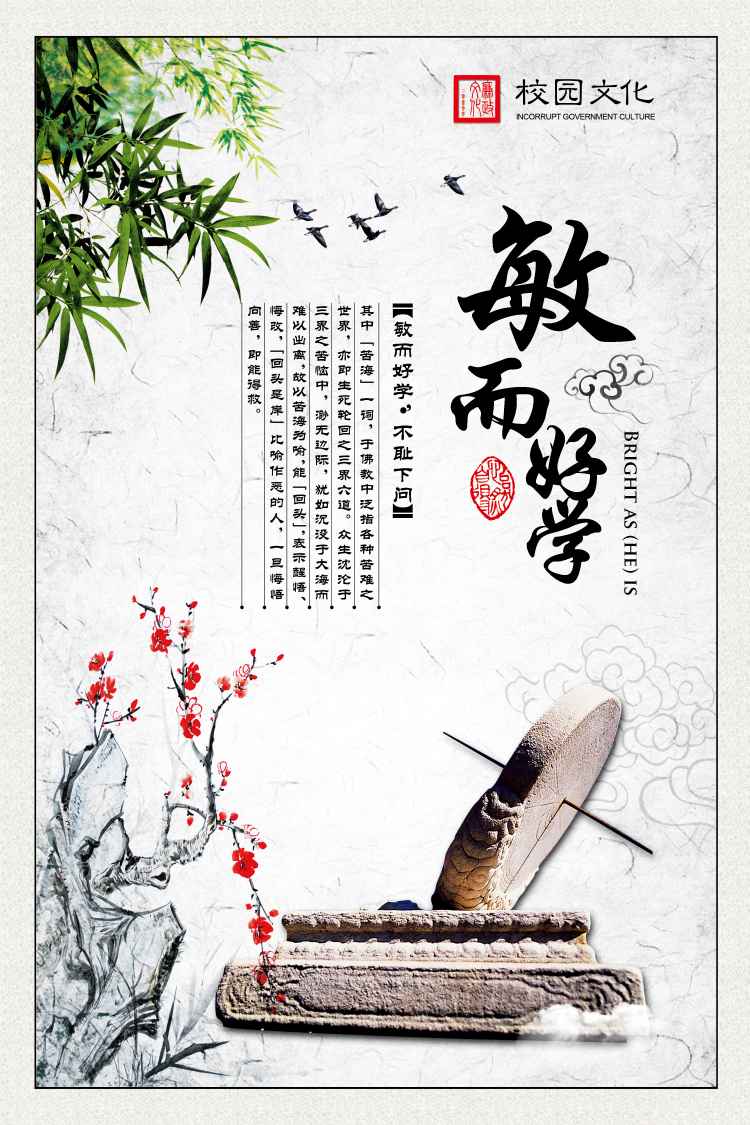 廉政
文化
校园文化
INCORRUPT GOVERNMENT CULTURE
敏而好学
BRIGHT AS (HE) IS
【敏而好学，不耻下问】
其中「苦海」一词，于佛教中泛指各种苦难之
世界，亦即生死轮回之三界六道。众生沈沦于
三界之苦恼中，渺无边际，犹如沉没于大海而
难以出离，故以苦海为喻，能「回头」，表示醒悟、
悔改，「回头是岸」比喻作恶的人，一旦悔悟
向善，即能得救。